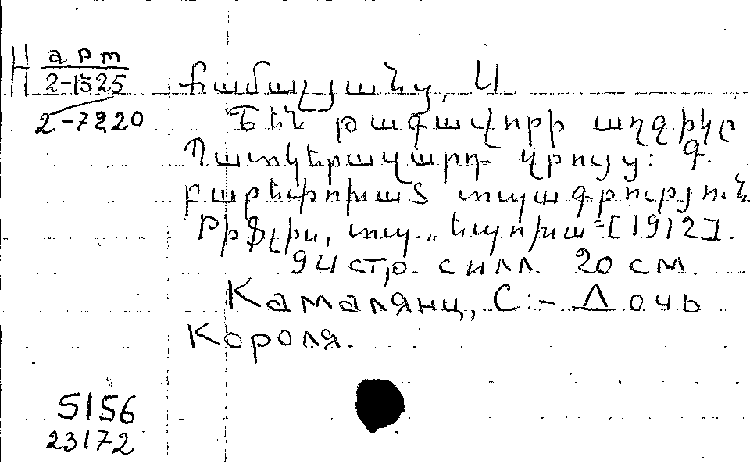 H арт
2-1525
2-7220
Քամալյանց, Ս.
Ֆեն թագավորի աղջիկը
Պատկերազարդ զրույց: Գ.
բարեփոխած տպագրություն
Թիֆլիս, տպ. „Էպոխա" [1912].
94 стр. с илл. 20 см.
Камалянц, С.- Дочь
Короля.
5156
23172